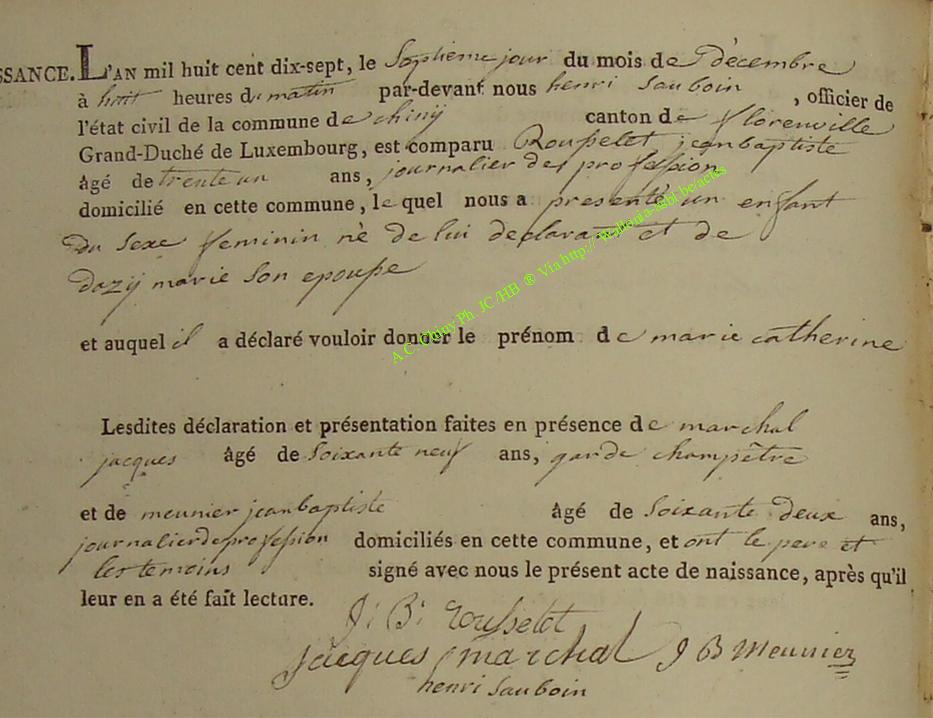 SSANCE. L'AN mil huit cent dix-sept, le Septieme jour du mois de décembre
à huit heures du matin par-devant nous henri Sauboin , officier de
l'état civil de la commune de chinÿ canton de florenville
Grand-Duché de Luxembourg, est comparu Rousselet jean baptiste
âgé de trente un ans, journalier de profession
domicilié en cette commune, le quel nous a presenté un enfant
du sexe feminin né de lui declarant et de
dazÿ marie son epousse
et auquel il a déclaré vouloir donner le prénom de marie catherine
Lesdites déclaration et présentation faites en présence de marchal
jacques âgé de Soixante neuf ans, garde champêtre
et de meunier jean baptiste âgé de Soixante deux ans,
journalier de profession domiciliés en cette commune, et ont le pere et
les temoins signé avec nous le présent acte de naissance, après qu'il
leur en a été fait lecture.
J: B: Rousselet
jacques marchal J B Meunier
henri Sauboin
A.C. Chiny Ph. JC /HB ® Via http://